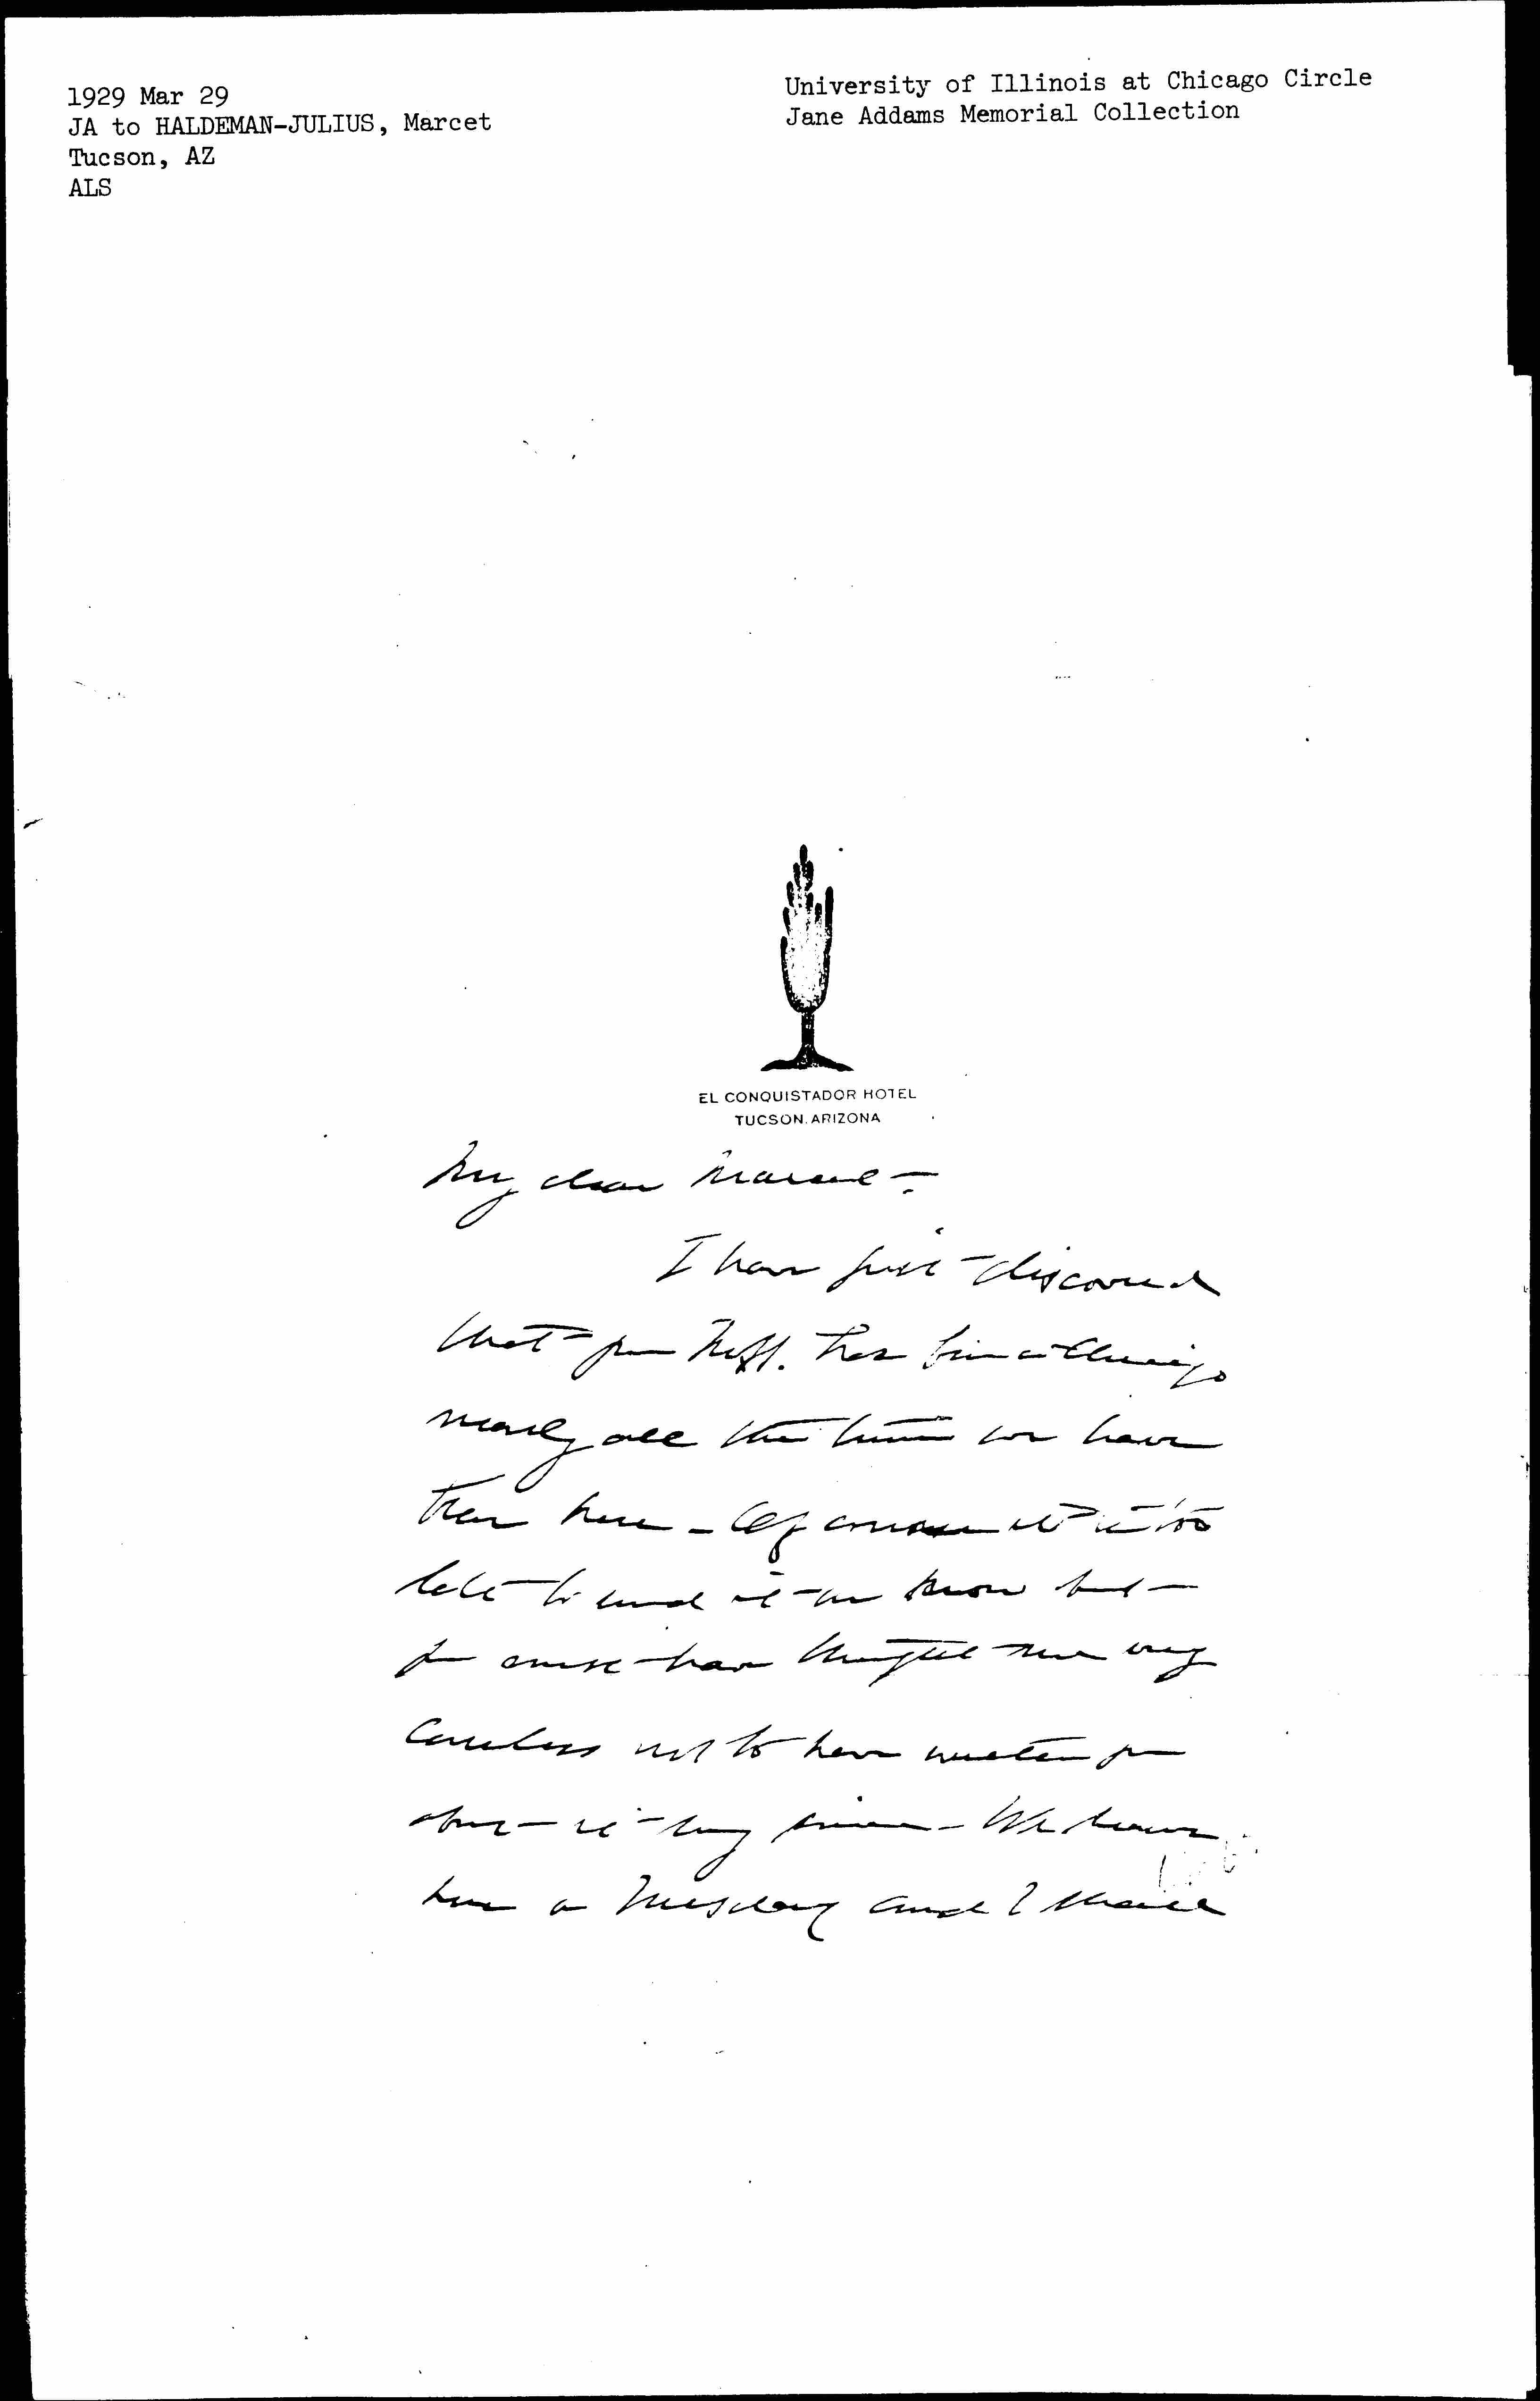 1929 Mar 29
JA to HALDEMAN-JULIUS, Marcet
Tucson, AZ
ALS
University of Illinois at Chicago Circle
Jane Addams Memorial Collection
EL CONQUISTADOR HOTEL
TUCSON, ARIZONA
My dear Marcet –
I have just discovered
that your has been in Chicago
nearly all the time we have
been here – Of course it is too
late to send it now but
you must have thought me very
careless not to have written you
about it long since – We leave
here on Tuesday and I shall